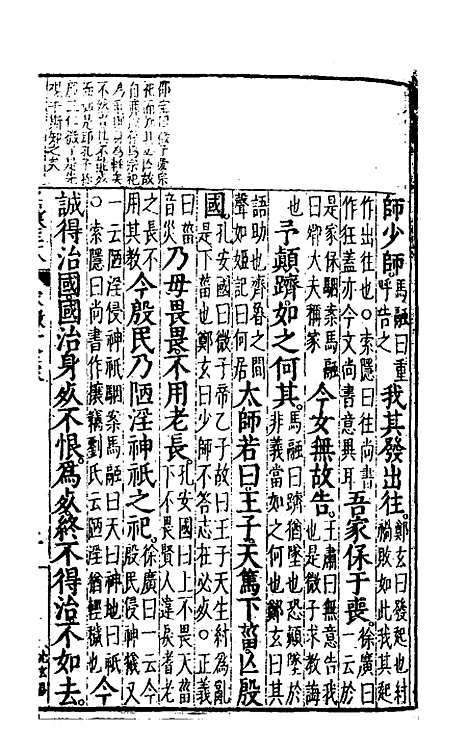 師少師馬融曰重呼告之我其發出往鄭玄曰發起也紂禍敗如此我其起
作出往也○索隱曰往尚書作狂蓋亦今文尚書意異耳吾家保于喪徐廣曰一云於
是家保駰案馬融曰卿大夫稱家今女無故告王肅曰無意告我也是微子求教誨
也予顛躋如之何其馬融曰躋猶墜也恐顛墜於非義當如之何也鄭玄曰其
語助也齊魯之間聲如姬記曰何居太師若曰王子天篤下菑亡殷
國孔安國曰微子帝乙子故曰王子天生紂為亂是下菑也鄭玄曰少師不答志在必死○正義
曰菑音災乃毋畏畏不用老長孔安國曰上不畏天菑下不畏賢人違戾耆老
之長不用其教今殷民乃陋淫神祇之祀徐廣曰一云今殷民侵神犧又
一云陋淫侵神祇駰案馬融曰天曰神地曰祇○索隱曰尚書作攘竊劉氏云陋淫猶輕穢也今
誠得治國國治身死不恨為死終不得治不如去